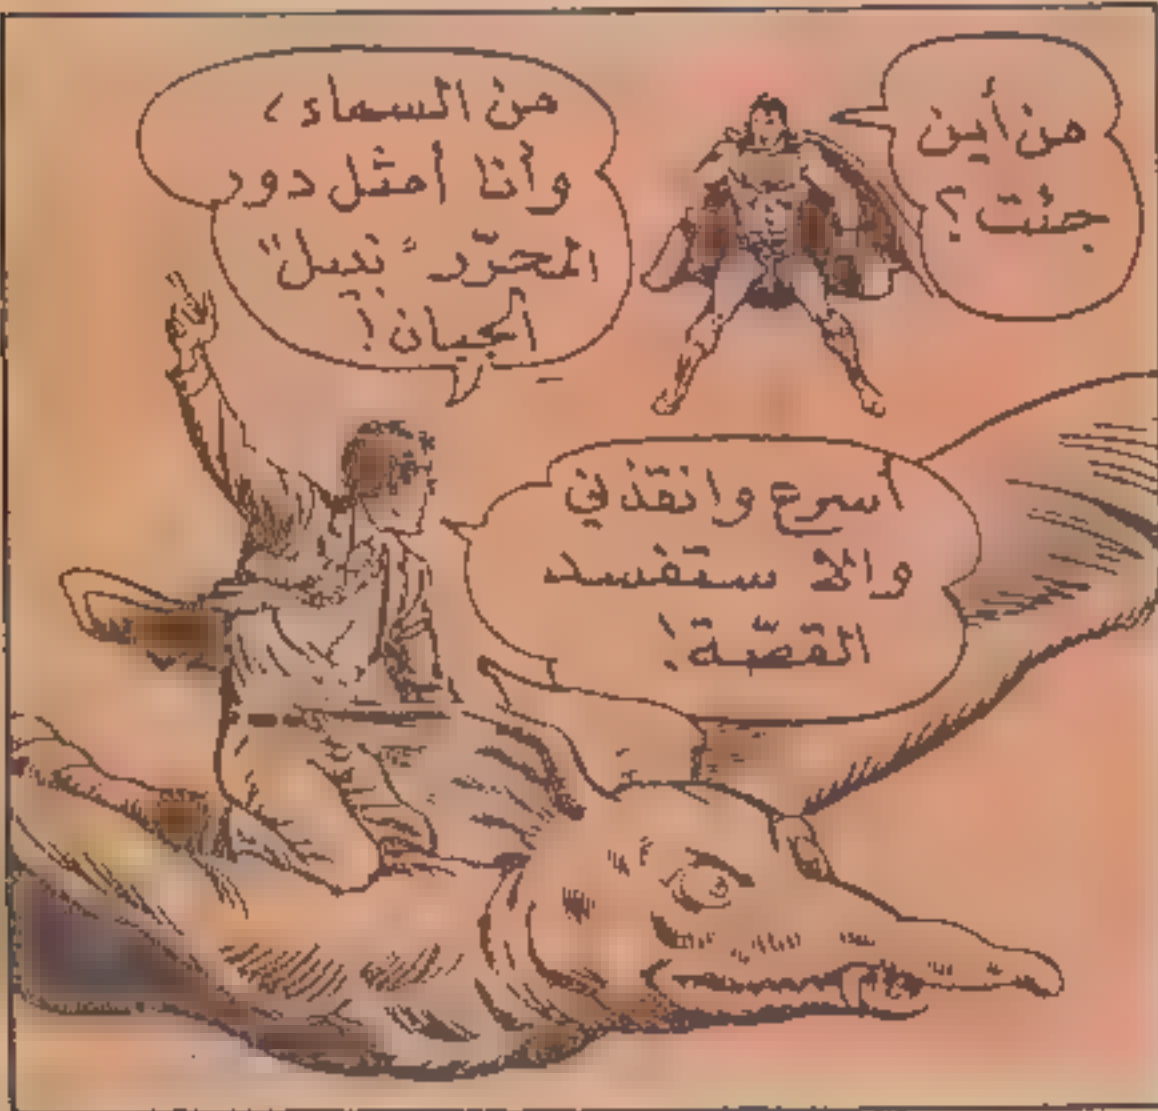 من أين
جئت؟
من السماء،
وأنا أمثل دور
المحرّر "نبيل"
الجبان!
أسرع وانقذني
والا ستفسد
القصّة!